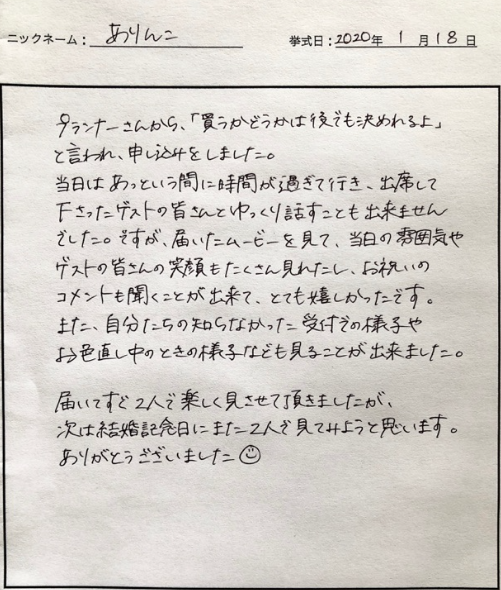 ニックネーム: ありんこ 挙式日: 2020年 1月18日
プランナーさんから、「買うかどうかは後でも決めれるよ」
と言われ、申し込みをしました。
当日はあっという間に時間が過ぎて行き、出席して
下さったゲストの皆さんとゆっくり話すことも出来ません
でした。ですが、届いたムービーを見て、当日の雰囲気や
ゲストの皆さんの笑顔もたくさん見れたし、お祝いの
コメントも聞くことが出来て、とても嬉しかったです。
また、自分たちの知らなかった受付での様子や
お色直し中のときの様子なども見ることが出来ました。
届いてすぐ2人で楽しく見させて頂きましたが、
次は結婚記念日にまた2人で見てみようと思います。
ありがとうございました☺